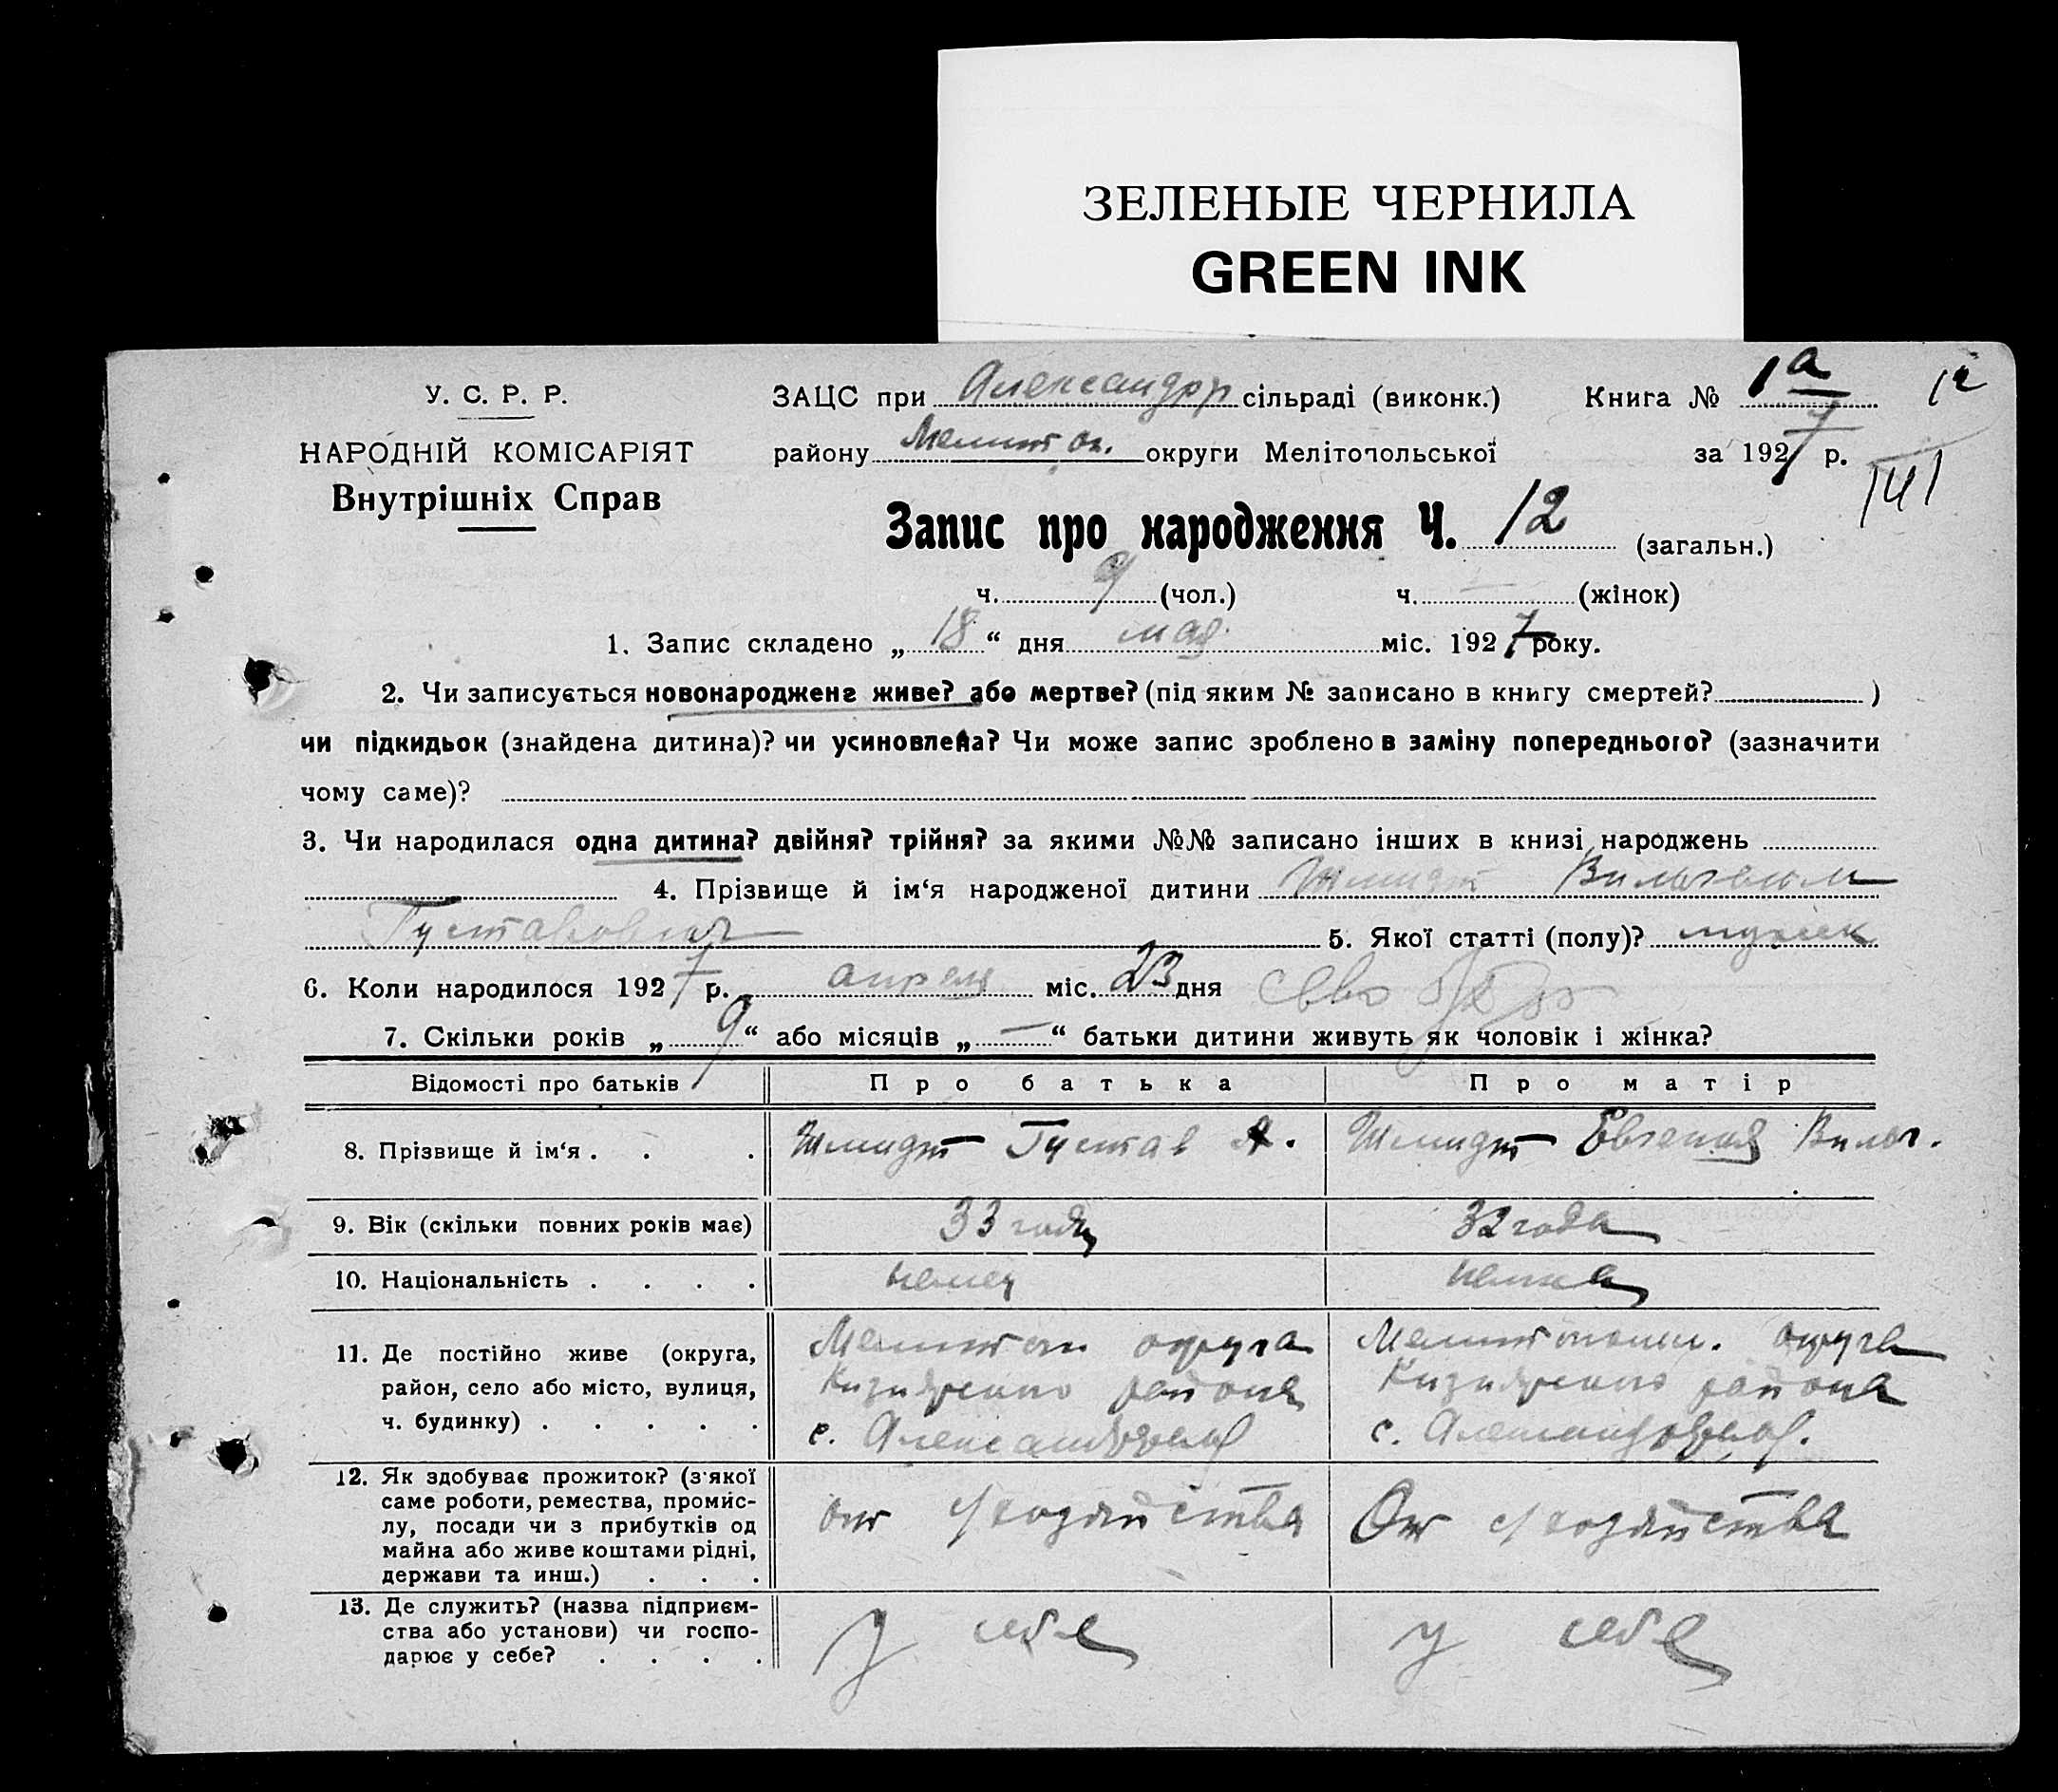 ЗЕЛЕНЫЕ ЧЕРНИЛА
GREEN INK
У. С. Р. Р.
НАРОДНІЙ КОМІСАРІЯТ
Внутрішніх Справ
ЗАЦС при Александрф сільраді (виконк.) Книга № 1а
району Мелитоп. округи Мелітопольської за 1927 р.
141
Запис про народження Ч. 12 (загальн.)
ч. 9 (чол.) ч. (жінок)
1. Запис складено „ 18 “ дня мая міс. 1927 року.
2. Чи записується новонароджене живе? або мертве? (під яким № записано в книгу смертей? )
чи підкидьок (знайдена дитина)? чи усиновлена? Чи може запис зроблено в заміну попереднього? (зазначити
чому саме)?
3. Чи народилася одна дитина? двійня? трійня? за якими №№ записано інших в книзі народжень
4. Прізвище й ім‘я народженої дитини Шмидт Вильгельм
Густавович 5. Якої статті (полу)? мужск
6. Коли народилося 1927 р. апреля міс. 23 дня
7. Скільки років „ 9 “ або місяців „ — “ батьки дитини живуть як чоловік і жінка?
Відомості про батьків Про батька Про матір
8. Прізвище й ім‘я . . . Шмидт Густав А. Шмидт Евгения Вильг.
9. Вік (скільки повних років має) 33 года 32 года
10. Національність . . . . немец немка
11. Де постійно живе (округа, район, село або місто, вулиця, ч. будинку) . . . . .
Мелитоп округа
района
с. Александрфельд
Мелитопольск. округа
района
с. Александрфельд.
12. Як здобуває прожиток? (з'якої саме роботи, ремества, промис-
лу, посади чи з прибутків од
майна або живе коштами рідні,
держави та инш.) . . .
от с/хозяйства От с/хозяйства
13. Де служить? (назва підприєм-
ства або установи) чи госпо-
дарює у себе? . . . .
у себе у себе